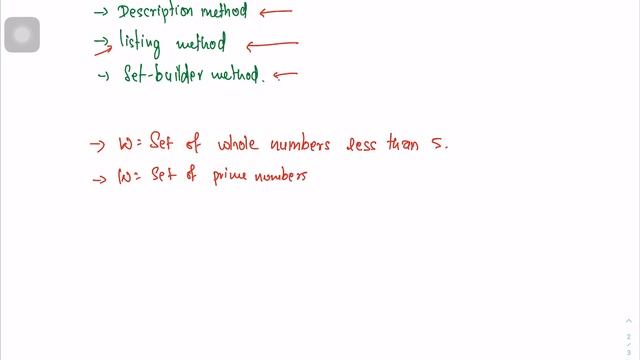 → Description method ←
→ listing method ←
→ Set-builder method. ←
→ W = Set of whole numbers less than 5.
→ W = Set of prime numbers
2
/
3